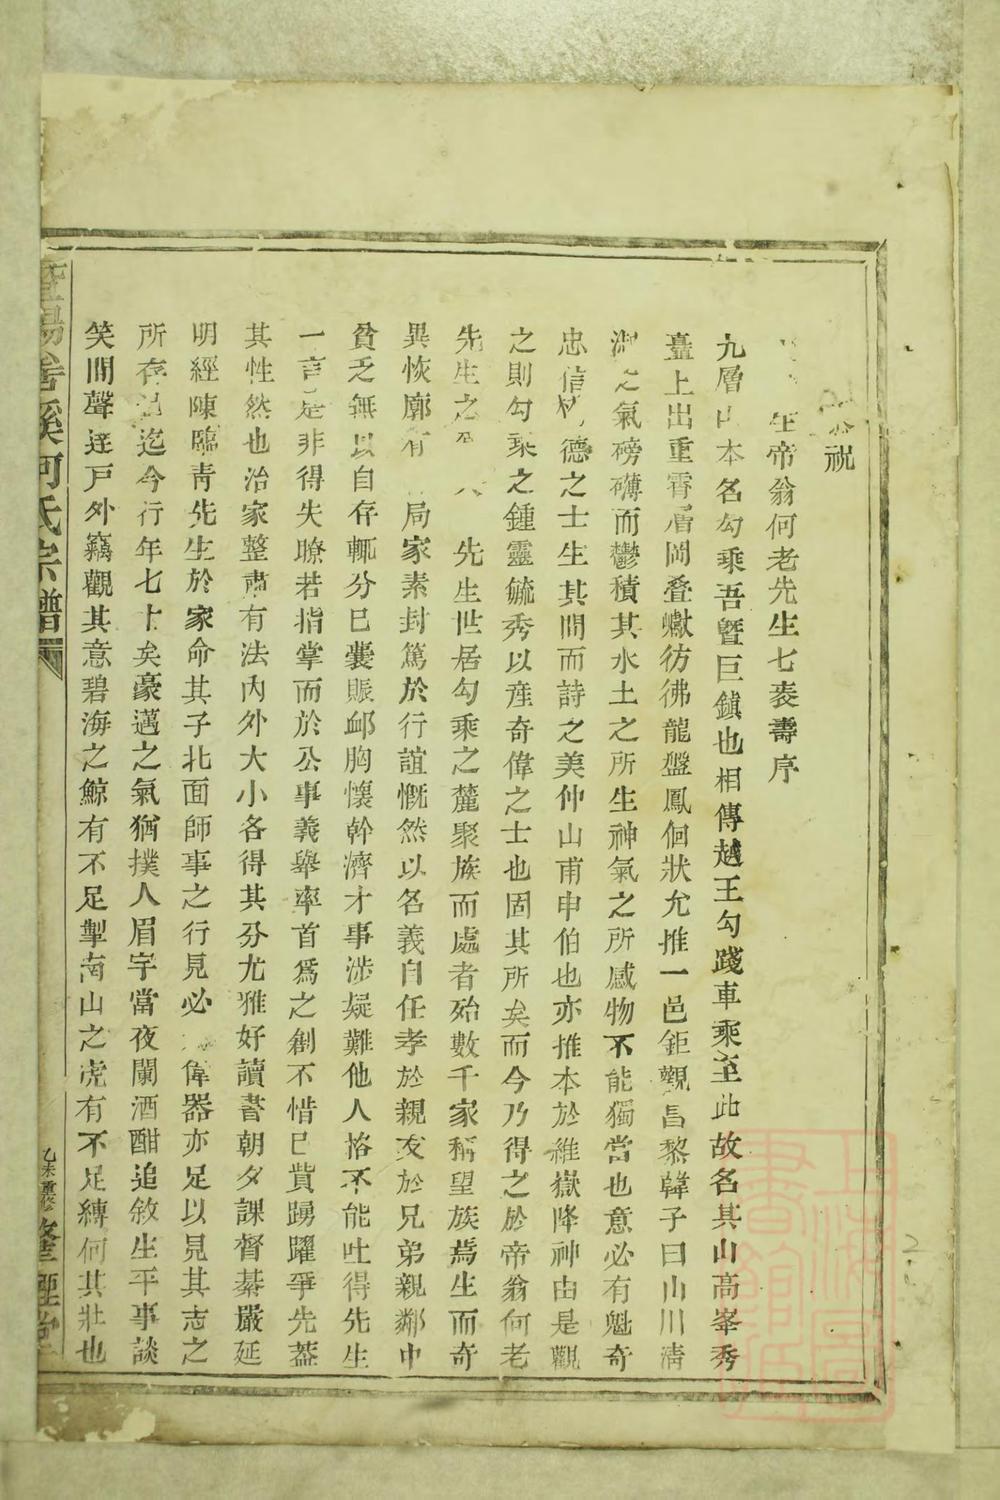 恭祝
生帝翁何老先生七袠壽序
九層山本名勾乘吾曁巨鎮也相傳越王勾踐車乘至此故名其山高峯秀
臺上出重霄層岡叠巘彷彿龍盤鳳佪狀允推一邑鉅觀昌黎韓子曰山川清
淑之氣磅礴而鬱積其水土之所生神氣之所感物不能獨當也意必有魁奇
忠信材德之士生其間而詩之美仲山甫申伯也亦推本於維嶽降神由是觀
之則勾乘之鍾靈毓秀以產奇偉之士也固其所矣而今乃得之於帝翁何老
先生之 先生世居勾乘之麓聚族而處者殆數千家稱望族焉生而奇
異恢廓有 局家素封篤於行誼慨然以名義自任孝於親友於兄弟親鄰中
貧乏無以自存輒分已囊賑邮胸懷幹濟才事涉疑難他人格不能吐得先生
一言是非得失瞭若指掌而於公事義舉率首爲之創不惜已貲踴躍爭先蓋
其性然也治家整肅有法內外大小各得其分尤雅好讀書朝夕課督綦嚴延
明經陳臨青先生於家命其子北面師事之行見必 偉器亦足以見其志之
所存已迄今行年七十矣豪邁之氣猶撲人眉宇當夜闌酒酣追敘生平事談
笑間聲达戸外竊觀其意碧海之鯨有不足掣南山之虎有不足縛何其壯也
暨陽 溪何氏宗譜
乙未重修
上海圖書館藏